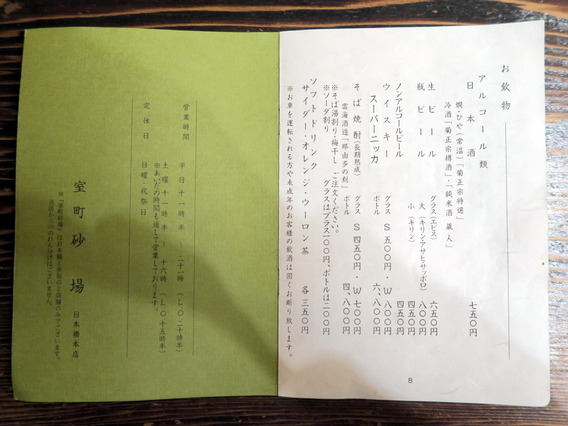 お飲物
アルコール類
日本酒 七五〇円
燗・ひや(常温)「菊正宗特選」
冷酒「菊正宗樽酒」・「純米酒 蔵人」
生ビール グラス(エビス) 六五〇円
瓶ビール 大(キリン・アサヒ・サッポロ) 八〇〇円
小(キリン) 四五〇円
ノンアルコールビール 四五〇円
ウイスキー グラス S 五〇〇円・W 八〇〇円
スーパーニッカ ボトル 六、八〇〇円
そば焼酎(長期熟成) グラス S 四五〇円・W 七〇〇円
雲海酒造「那由多の刻」 ボトル 四、八〇〇円
※そば湯割り・梅干し ご注文ください。
※ソーダ割り グラスはグラス一〇〇円、ボトルは二〇〇円
ソフトドリンク
サイダー・オレンジ・ウーロン茶 各 三五〇円
※お車を運転される方や未成年のお客様の飲酒は固くお断り致します。
8
営業時間 平日 十一時半 ― 二十一時(L・〇 二十時半)
土曜 十一時半 ― 十六時(L・〇 十五時半)
※あいだの時間も通して営業しております。
定休日 日曜・祝祭日
室町砂場 日本橋本店
※「室町砂場」は日本橋と赤坂の2店舗のみでございます。